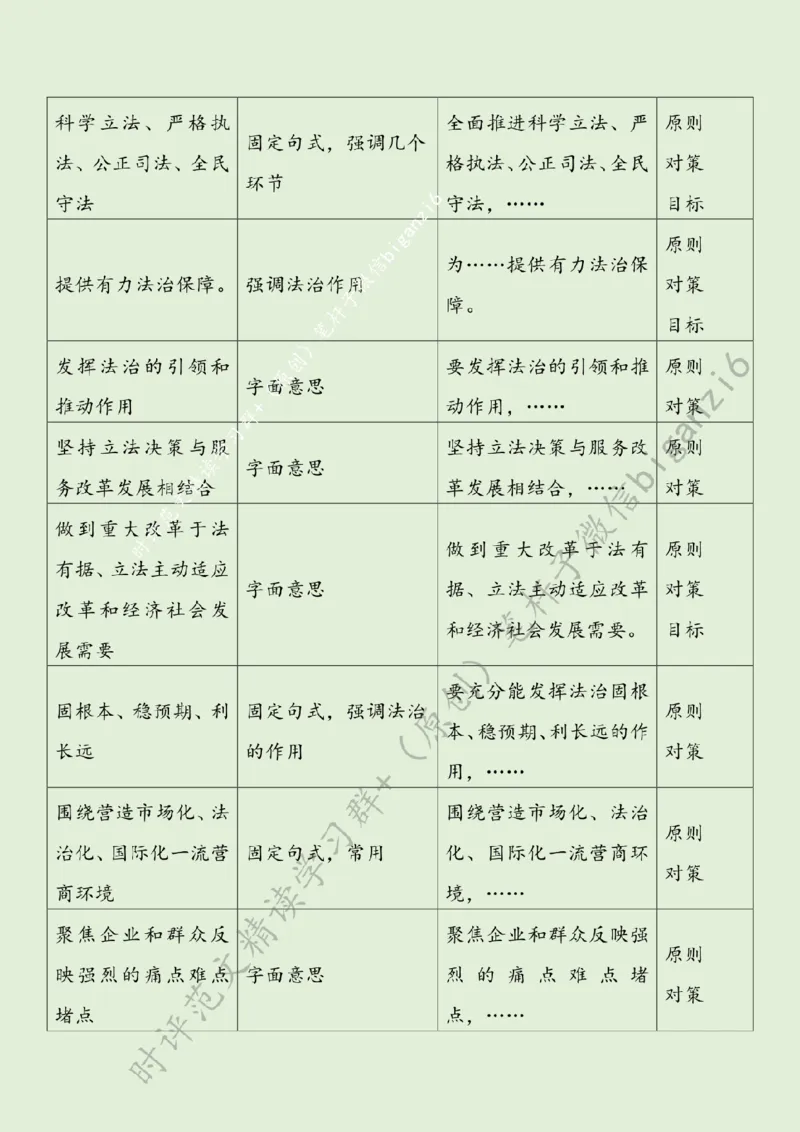 科学立法、严格执
法、公正司法、全民
守法
固定句式，强调几个
环节
全面推进科学立法、严
格执法、公正司法、全民
守法，……
原则
对策
目标
提供有力法治保障。
强调法治作用
为……提供有力法治保
障。
原则
对策
目标
发挥法治的引领和
推动作用
字面意思
要发挥法治的引领和推
动作用，……
原则
对策
坚持立法决策与服
务改革发展相结合
字面意思
坚持立法决策与服务改
革发展相结合，……
原则
对策
做到重大改革于法
有据、立法主动适应
改革和经济社会发
展需要
字面意思
做到重大改革于法有
据、立法主动适应改革
和经济社会发展需要。
原则
对策
目标
固根本、稳预期、利
长远
固定句式，强调法治
的作用
要充分能发挥法治固根
本、稳预期、利长远的作
用，……
原则
对策
围绕营造市场化、法
治化、国际化一流营
商环境
固定句式，常用
围绕营造市场化、法治
化、国际化一流营商环
境，……
原则
对策
聚焦企业和群众反
映强烈的痛点难点
堵点
字面意思
聚焦企业和群众反映强
烈的痛点难点堵
点，……
原则
对策
时评范文精读学习群+（原创）笔杆子微信biganzi6
时评范文精读学习群+（原创）笔杆子微信biganzi6